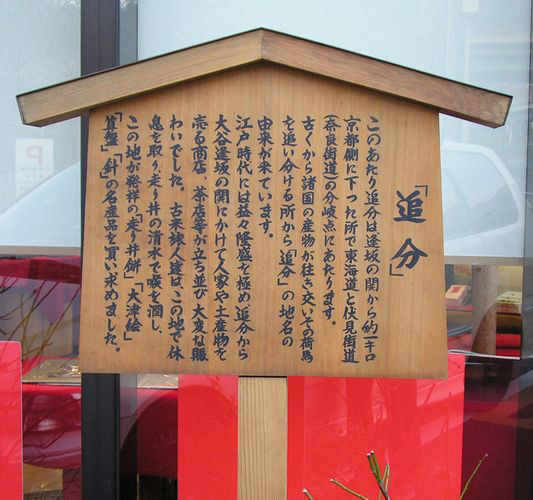 「追分」
このあたり追分は逢坂の関から約一キロ
京都側に下った所で東海道と伏見街道
（奈良街道）の分岐点にあたります。
古くから諸国の産物が往き交いその荷馬
を追い分ける所から「追分」の地名の
由来が来ています。
江戸時代には益々隆盛を極め追分から
大谷逢坂の関にかけて人家や土産物を
売る商店、茶店等が立ち並び大変な賑
わいでした。古来旅人達は、この地で休
息を取り、走り井の清水で喉を潤し、
この地が発祥の「走り井餅」「大津絵」
「算盤」「針」の名産品を買い求めました。
P